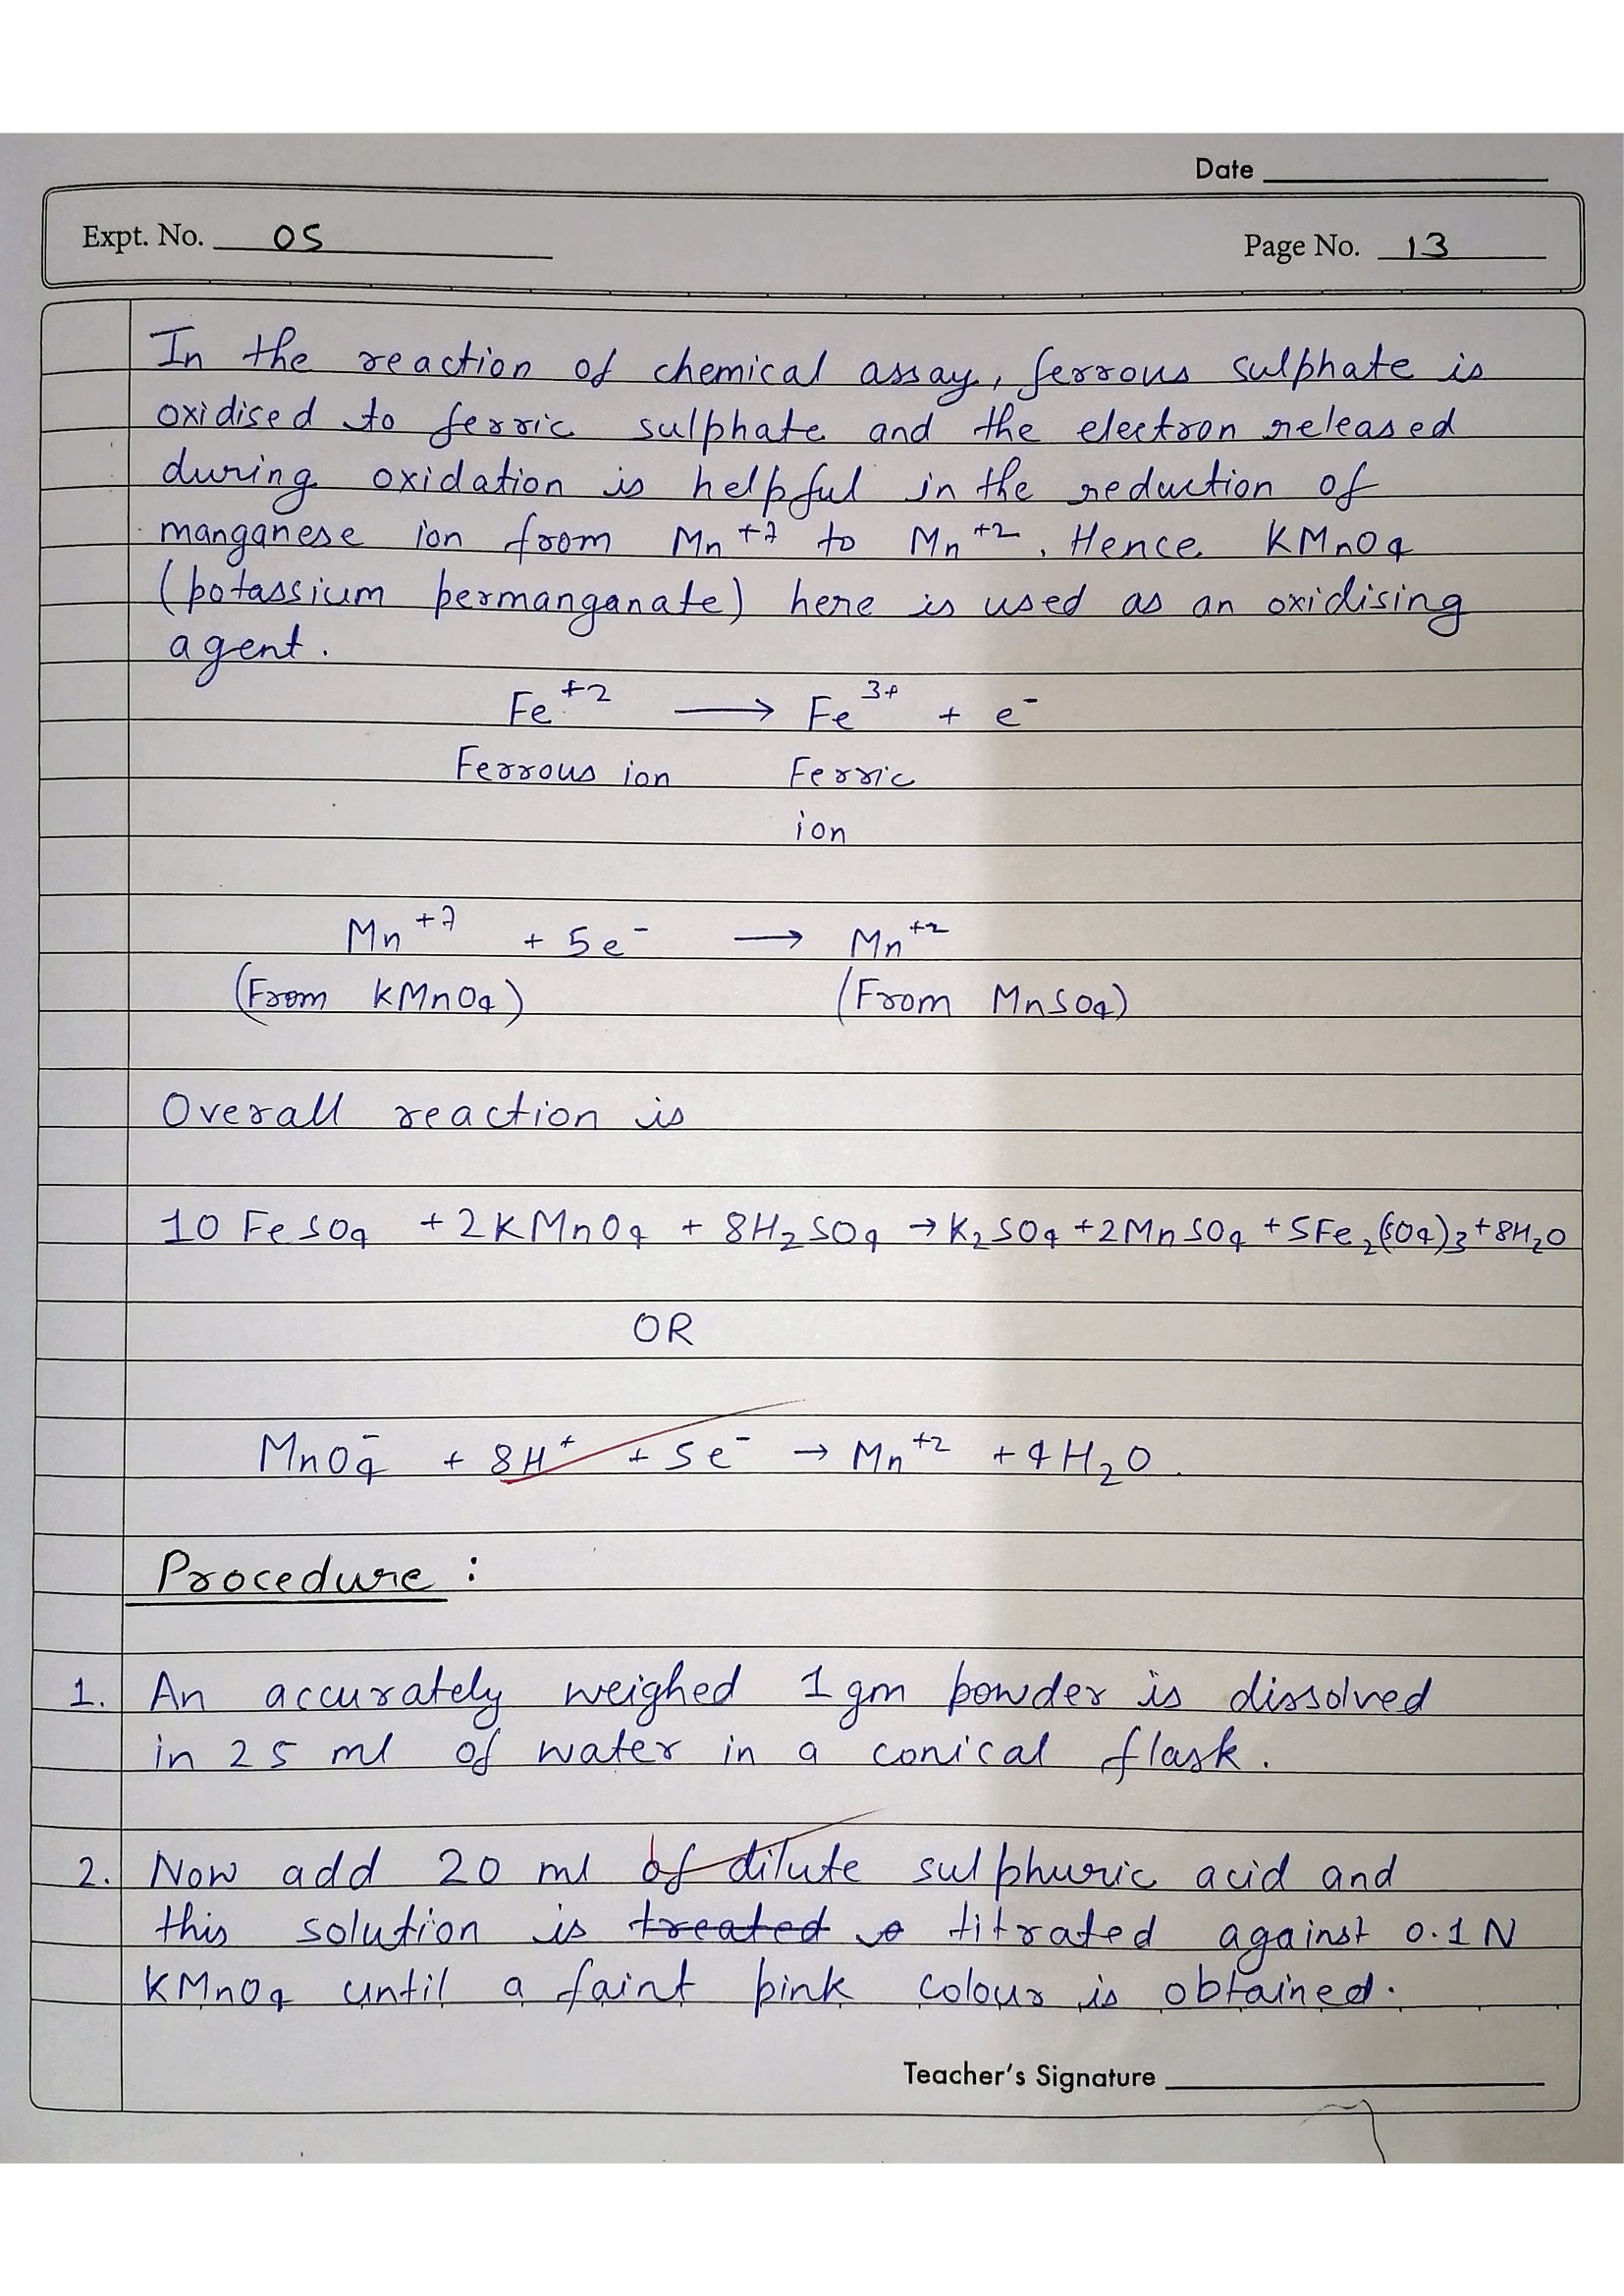 Date
Expt. No. 05
Page No. 13
In the reaction of chemical assay, ferrous sulphate is
oxidised to ferric sulphate and the electron released
during oxidation is helpful in the reduction of
manganese ion from Mn⁺⁷ to Mn⁺². Hence KMnO₄
(potassium permanganate) here is used as an oxidising
agent.
Fe⁺² ⟶ Fe³⁺ + e⁻
Ferrous ion Ferric
ion
Mn⁺⁷ + 5e⁻ ⟶ Mn⁺²
(From KMnO₄) (From MnSO₄)
Overall reaction is
10 FeSO₄ + 2KMnO₄ + 8H₂SO₄ → K₂SO₄ + 2MnSO₄ + 5Fe₂(SO₄)₃ + 8H₂O
OR
MnO₄⁻ + 8H⁺ + 5e⁻ → Mn⁺² + 4H₂O.
Procedure :
1. An accurately weighed 1 gm powder is dissolved
in 25 ml of water in a conical flask.
2. Now add 20 ml of dilute sulphuric acid and
this solution is treated titrated against 0.1 N
KMnO₄ until a faint pink colour is obtained.
Teacher's Signature